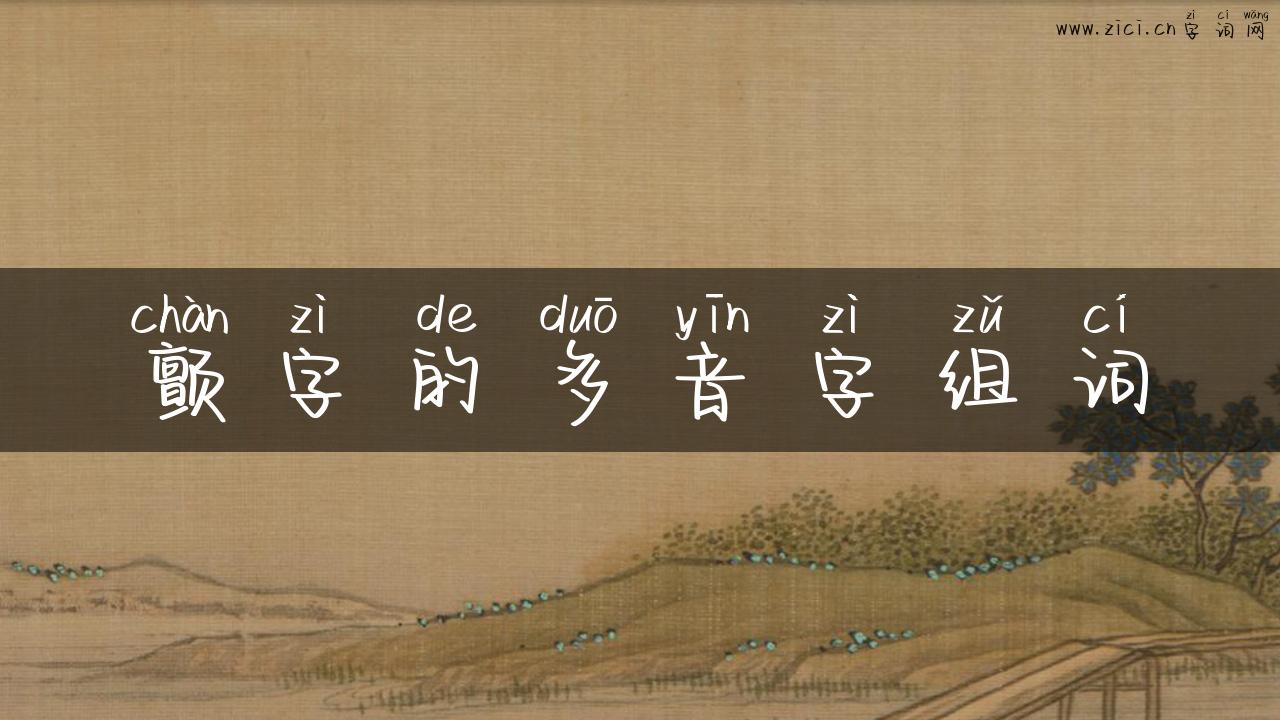 zì cí wǎng
www.zici.cn 字 词 网
chàn zì de duō yīn zì zǔ cí
颤 字 的 多 音 字 组 词